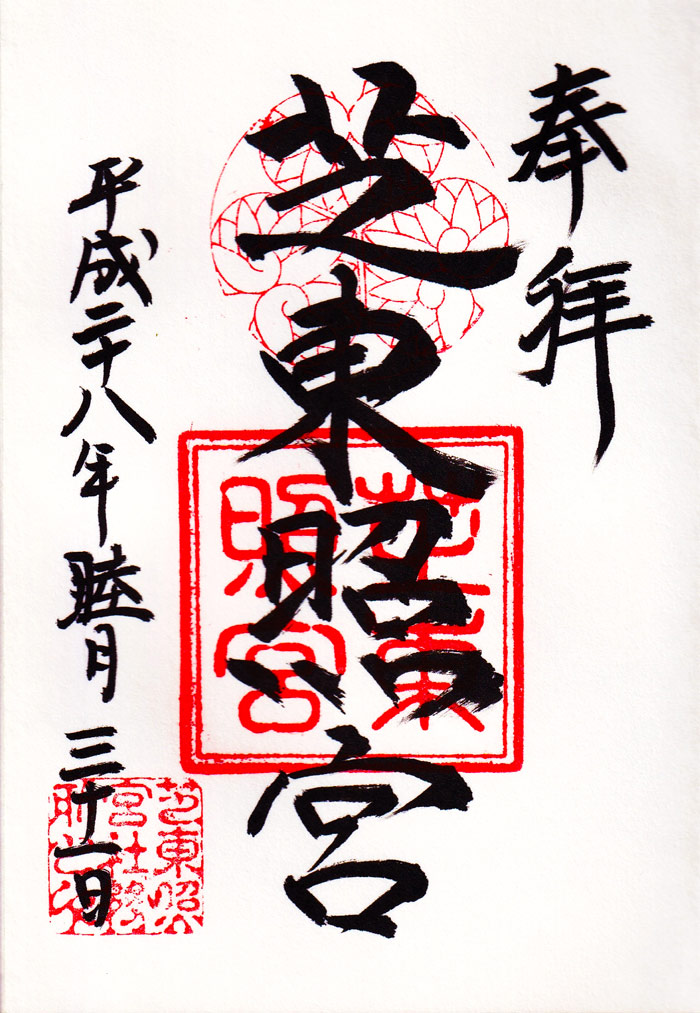 奉拝
芝東照宮
平成二十八年睦月三十一日
芝東照宮
芝東照
宮社務
所之印